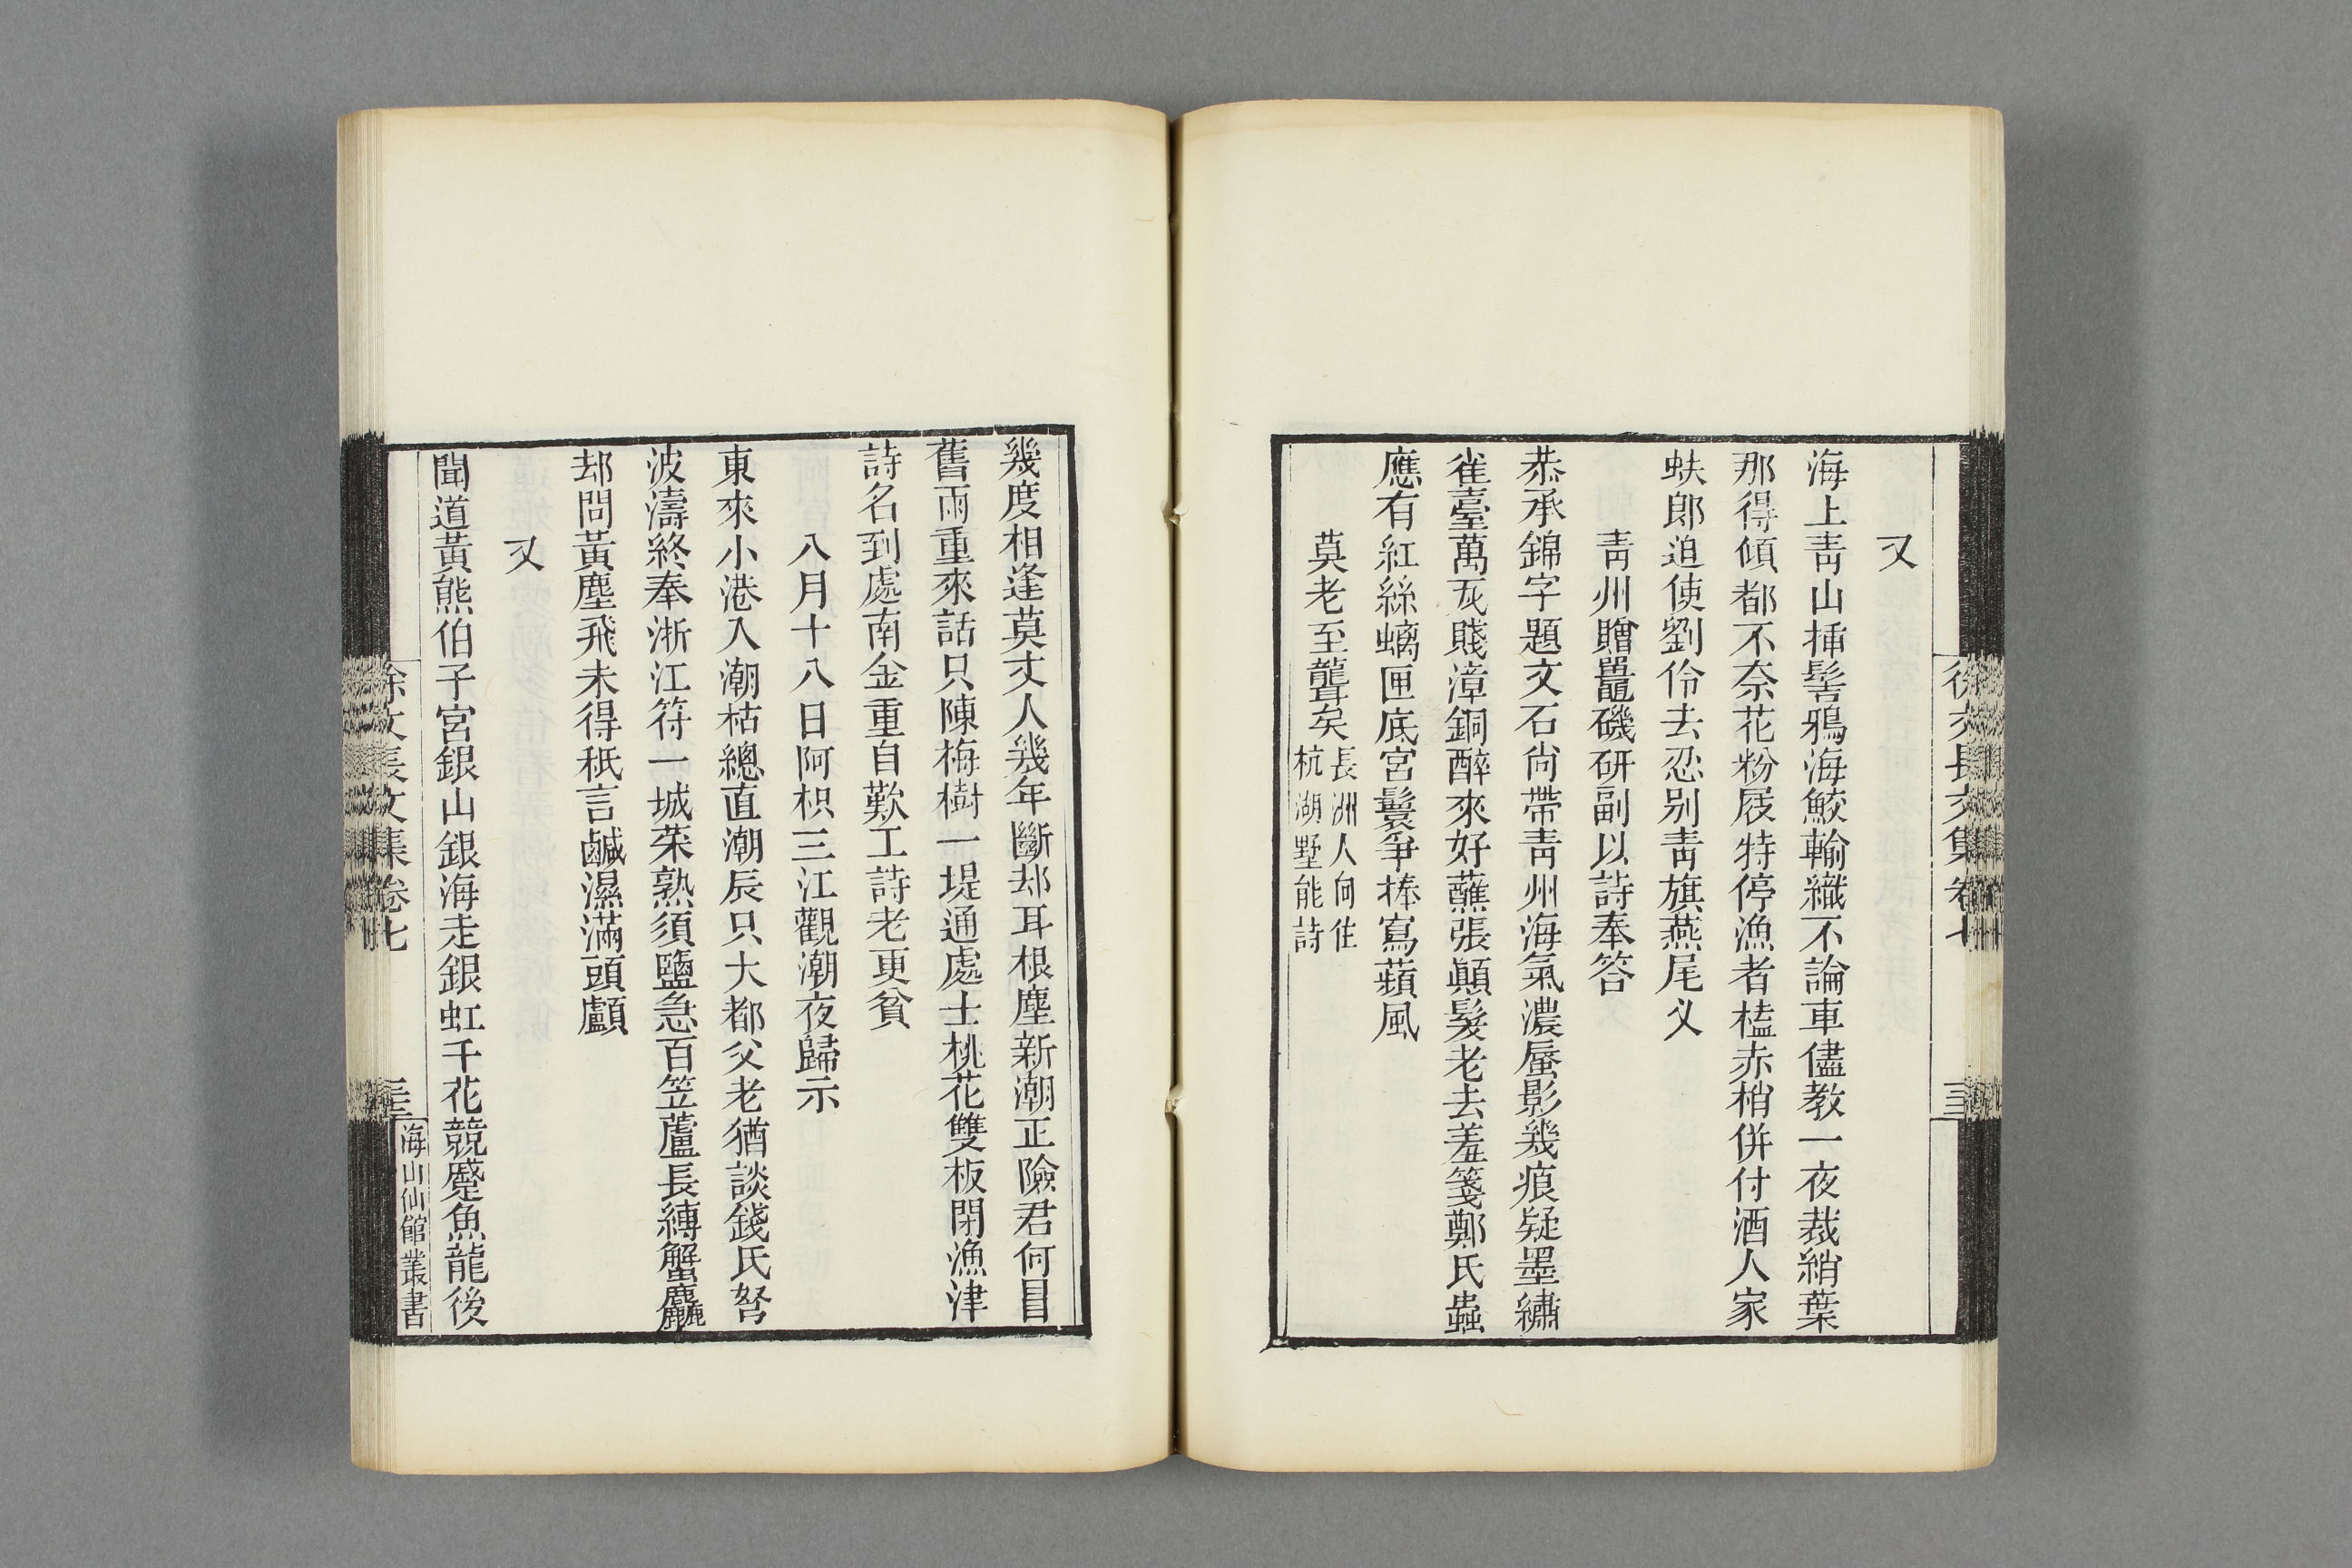 又
海上靑山揷髻鴉海鮫輸織不論車儘教一夜裁綃葉
那得傾都不奈花粉屐特停漁者榼赤梢併付酒人家
蚨郎迫使劉伶去忍别靑旗燕尾义
靑州贈鼉磯硏副以詩奉答
恭承錦字題文石尙帶靑州海氣濃蜃影幾痕疑墨繡
雀臺萬瓦賤漳銅醉來好蘸張顚髮老去羞箋鄭氏蟲
應有紅絲螭匣底宮鬟爭捧寫蘋風
莫老至聾矣長洲人向住
杭湖墅能詩
幾度相逢莫丈人幾年斷却耳根塵新潮正險君何自
舊雨重來話只陳梅樹一堤通處士桃花雙板閉漁津
詩名到處南金重自歎工詩老更貧
八月十八日阿枳三江觀潮夜歸示
東來小港入潮枯總直潮辰只大都父老猶談錢氏弩
波濤終奉浙江符一城菜熟須鹽急百笠蘆長縛蟹麤
却問黃塵飛未得秖言鹹濕滿頭顱
又
聞道黃熊伯子宮銀山銀海走銀虹千花競蹙魚龍後
徐文長文集卷七
海山仙館叢書